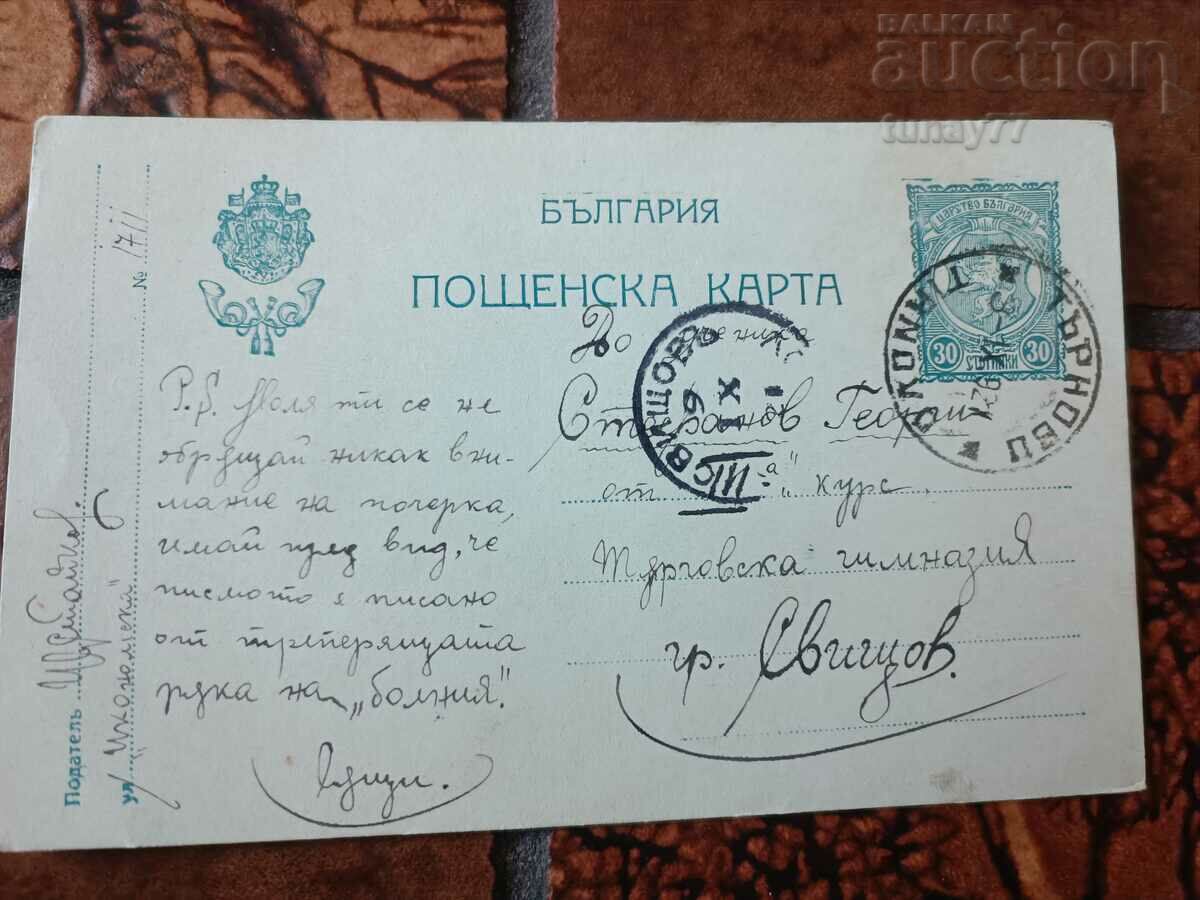 BALKAN
auction
tunay77
БЪЛГАРИЯ
ПОЩЕНСКА КАРТА
ЦАРСТВО БЪЛГАРИЯ
30 СТОТИНКИ 30
ТЪРНОВО
СВИЩОВЪ
6 XI
До ученика
Стефанов Георги
от III "а" курс,
Търговска гимназия
гр. Свищов.
P.S. Моля ти се не
обръщай никак вни-
мание на почерка,
имай пред вид, че
писмото ѝ писано
от треперящата
ръка на „болния".
Податель
ул. „Икономска" № 1711